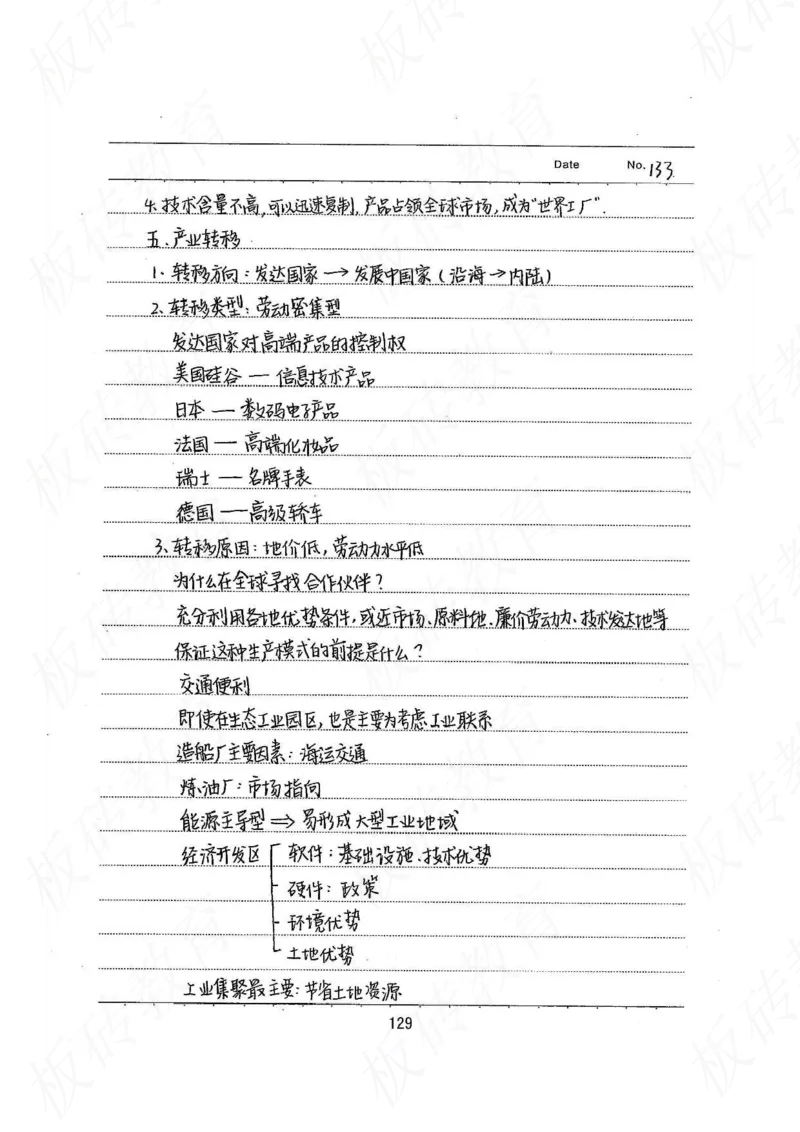 Date No. 133
4. 技术含量不高,可以迅速复制,产品占领全球市场,成为"世界工厂".
五、产业转移
1. 转移方向:发达国家→发展中国家(沿海→内陆)
2. 转移类型:劳动密集型
发达国家对高端产品的控制权
美国硅谷—信息技术产品
日本—数码电子产品
法国—高端化妆品
瑞士—名牌手表
德国—高级轿车
3. 转移原因:地价低,劳动力水平低
为什么在全球寻找合作伙伴?
充分利用各地优势条件,或近市场、原料地、廉价劳动力、技术发达地等
保证这种生产模式的前提是什么?
交通便利
即使在生态工业园区,也是主要为考虑工业联系
造船厂主要因素:海运交通
炼油厂:市场指向
能源主导型⇒易形成大型工业地域
经济开发区 软件:基础设施、技术优势
硬件:政策
环境优势
土地优势
工业集聚最主要:节省土地资源
129
板砖教育